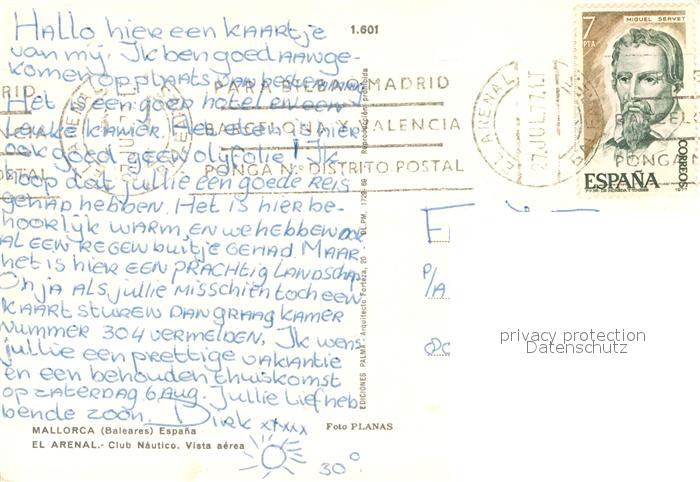 Hallo hier een kaartje
van mij. Ik ben goed aange-
komen op plaats van bestemming
Het is een goed hotel en een
leuke kamer. Het eten is hier
ook goed geen olyfolie! Ik
hoop dat jullie een goede reis
gehad hebben. Het is hier be-
hoorlijk warm, en we hebben ook
al een regenbuitje gehad. Maar
het is hier een prachtig landschap
Oh ja als jullie misschien toch een
kaart sturen dan graag kamer
nummer 304 vermelden, Ik wens
jullie een prettige vakantie
en een behouden thuiskomst
op zaterdag 6 Aug. Jullie liefheb-
bende zoon. Dirk xxxxx
30°
MALLORCA (Baleares) España
EL ARENAL.- Club Náutico. Vista aérea
Foto PLANAS
1.601
EDICIONES PALMA - Arquitecto Forteza, 20 - DL. PM. 1726-69 Reproducción prohibida
PARA BILBAO MADRID
BARCELONA Y VALENCIA
PONGA Nº DISTRITO POSTAL
EL ARENAL
27 JUL. 77
7
PTA
MIGUEL SERVET
CORREOS
ESPAÑA
1977
P/A
privacy protection
Datenschutz